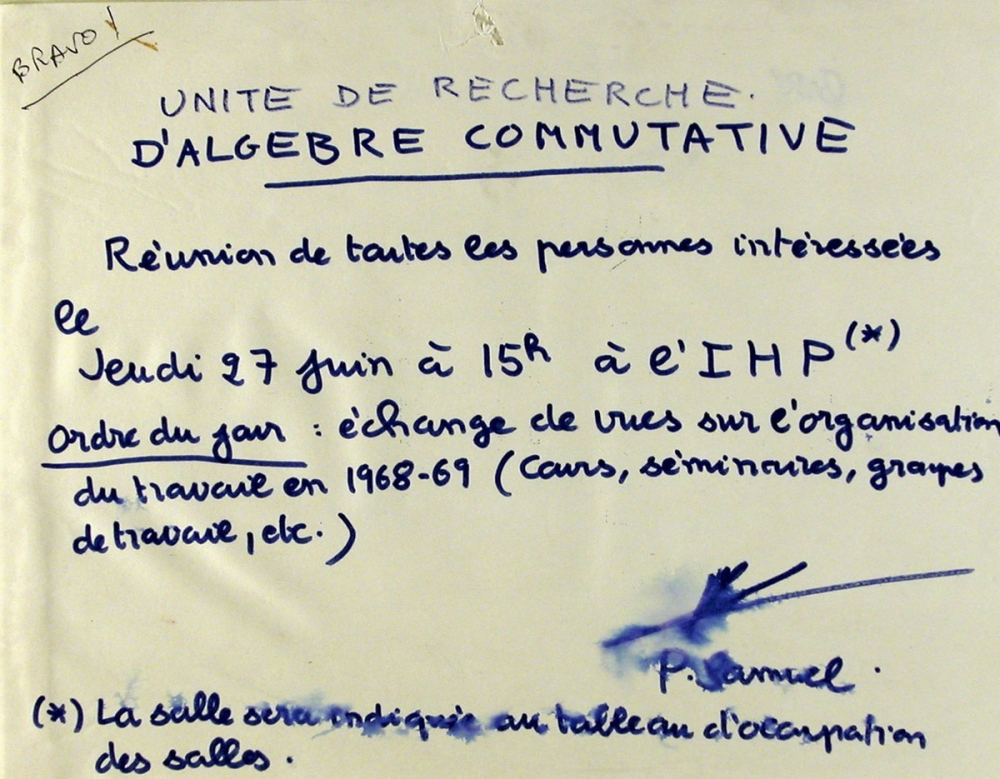 BRAVO!
UNITE DE RECHERCHE.
D'ALGEBRE COMMUTATIVE
Réunion de toutes les personnes intéressées
le
Jeudi 27 juin à 15h à l'IHP(*)
Ordre du jour : échange de vues sur l'organisation
du travail en 1968-69 (Cours, séminaires, groupes
de travail, etc.)
P. Samuel.
(*) La salle sera indiquée au tableau d'occupation
des salles.